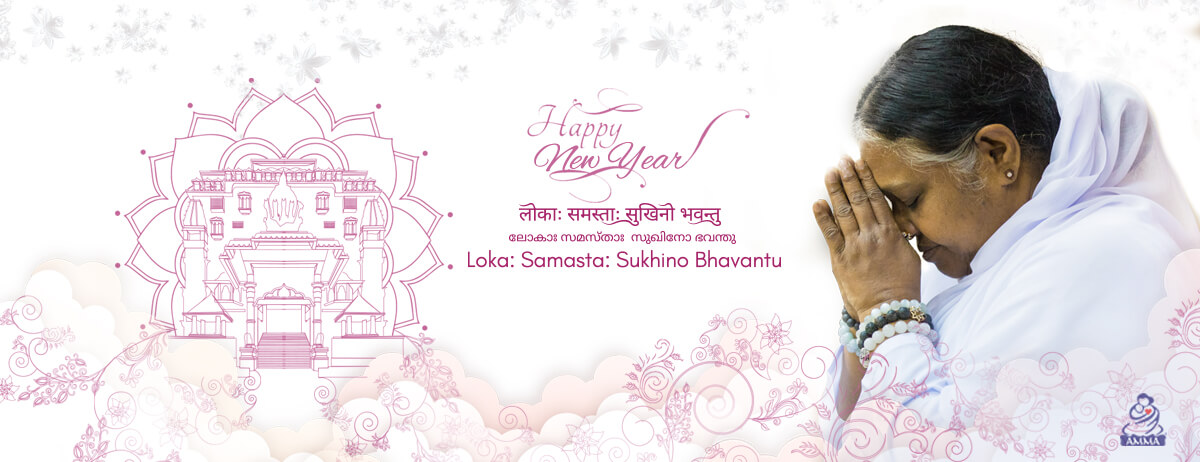 Happy
New Year
लोकाः समस्ताः सुखिनो भवन्तु
ലോകാഃ സമസ്താഃ സുഖിനോ ഭവന്തു
Loka: Samasta: Sukhino Bhavantu
AMMA